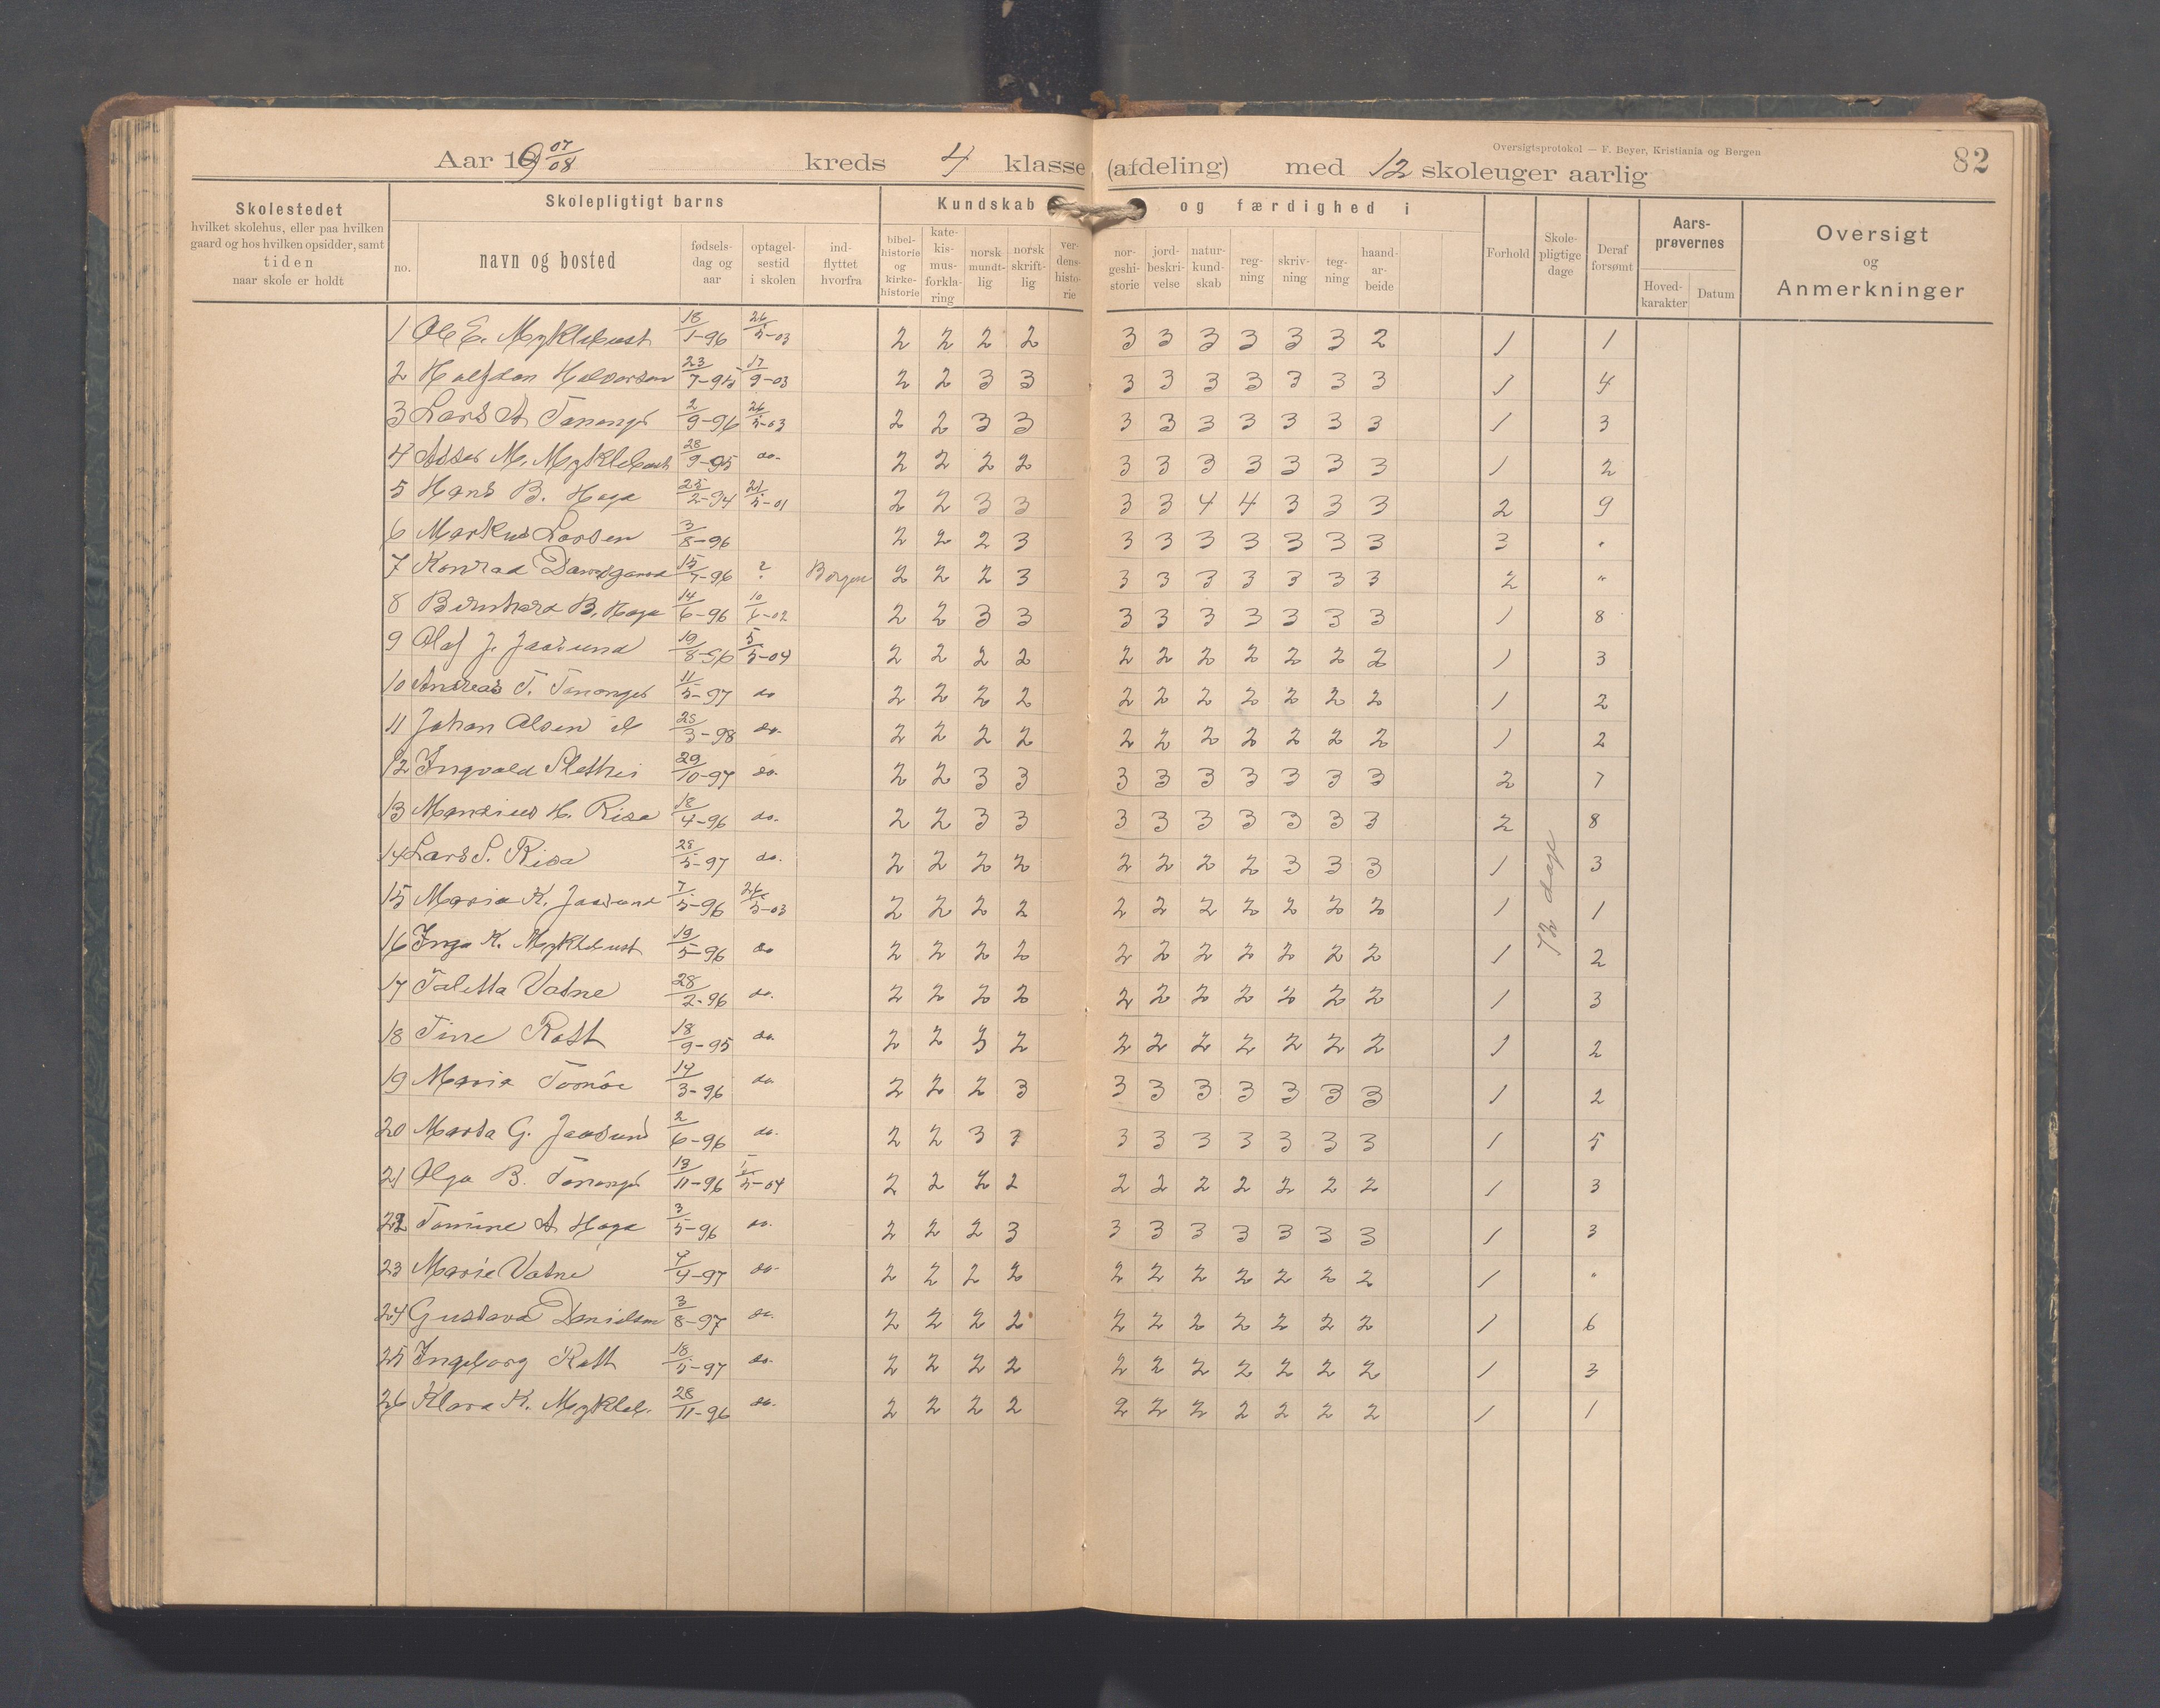 Oversigtsprotokol — F. Beyer, Kristiania og Bergen
Aar 19 07/08 kreds 4 klasse (afdeling) med 12 skoleuger aarlig 82
Skolestedet
hvilket skolehus, eller paa hvilken
gaard og hos hvilken opsidder, samt
tiden
naar skole er holdt
Skolepligtigt barns
no. navn og bosted fødselsdag og aar optagelsestid i skolen indflyttet hvorfra
Kundskab og færdighed i
bibelhistorie og kirkehistorie katekismusforklaring norsk mundtlig norsk skriftlig verdenshistorie norgeshistorie jordbeskrivelse naturkundskab regning skrivning tegning haandarbeide
Forhold Skolepligtige dage Deraf forsømt
Aarsprøvernes
Hovedkarakter Datum
Oversigt
og
Anmerkninger
1 Ole E. Myklebust 18/1-96 26/5-03 2 2 2 2 3 3 3 3 3 3 2 1 1
2 Halfdan Halvorsen 23/7-95 17/9-03 2 2 3 3 3 3 3 3 3 3 3 1 4
3 Lars A Tananger 2/9-96 26/5-03 2 2 3 3 3 3 3 3 3 3 3 1 3
4 Asser M. Myklebust 28/9-95 do. 2 2 2 2 3 3 3 3 3 3 3 1 2
5 Hans B. Haga 25/2-94 21/5-01 2 2 3 3 3 3 4 4 3 3 3 2 9
6 Markus Larsen 3/8-96 2 2 2 3 3 3 3 3 3 3 3 3 "
7 Konrad 15/7-96 ? Bergen 2 2 2 3 3 3 3 3 3 3 3 2 "
8 Bernhard B. Haga 14/6-96 10/6-02 2 2 3 3 3 3 3 3 3 3 3 1 8
9 Olaf J. Jaasund 19/8-96 5/5-04 2 2 2 2 2 2 2 2 2 2 2 1 3
10 Andreas T. Tananger 11/5-97 do 2 2 2 2 2 2 2 2 2 2 2 1 2
11 Johan Olsen 25/3-98 do. 2 2 2 2 2 2 2 2 2 2 2 1 2
12 Ingvald Slethei 29/10-97 do. 2 2 3 3 3 3 3 3 3 3 3 2 7
13 Mandius H. Risa 18/4-96 do. 2 2 3 3 3 3 3 3 3 3 3 2 8
14 Lars S. Risa 28/5-97 do. 2 2 2 2 2 2 2 2 3 3 3 1 3
15 Maria K. Jaasund 7/5-96 26/5-03 2 2 2 2 2 2 2 2 2 2 2 1 1
72 dage
16 Inga K. Myklebust 19/5-96 do 2 2 2 2 2 2 2 2 2 2 2 1 2
17 Taletta Vatne 28/2-96 do. 2 2 2 2 2 2 2 2 2 2 2 1 3
18 Tine Rott 18/9-95 do. 2 2 3 2 2 2 2 2 2 2 2 1 2
19 Maria 14/3-96 do. 2 2 2 3 3 3 3 3 3 3 3 1 2
20 Marta G. Jaasund 2/6-96 do. 2 2 3 3 3 3 3 3 3 3 3 1 5
21 Olga B. Tananger 13/11-96 5/5-04 2 2 2 2 2 2 2 2 2 2 2 1 3
22 Tomine A Haga 3/5-96 do. 2 2 2 3 3 3 3 3 3 3 3 1 3
23 Marie Vatne 7/4-97 do. 2 2 2 2 2 2 2 2 2 2 2 1 "
24 Gustava Danielsen 3/8-97 do. 2 2 2 2 2 2 2 2 2 2 2 1 6
25 Ingeborg Rott 18/5-97 do. 2 2 2 2 2 2 2 2 2 2 2 1 3
26 Klara K. Mykleb. 28/11-96 do. 2 2 2 2 2 2 2 2 2 2 2 1 1